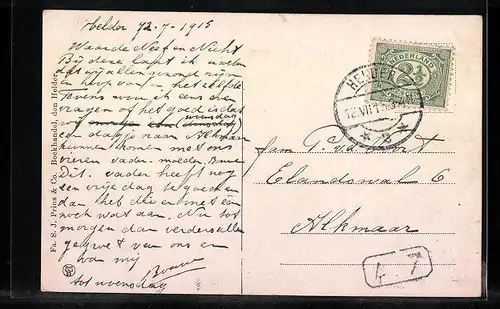 Helder 12-7-1915
Waarde Neef en Nicht
Bij deze laat ik weten
dat wij allen gezond zijn
en hoop van het zelfde
Tevens wou ik eens even
vragen of het goed is dat
wij woensdag
een dagje naar Alkmaar
kunnen komen met ons
vieren vader. moeder.
Dit. vader heeft nog
een vrije dag te goed en
dan heb die er met een
noch wat aan. Nu tot
morgen dan verders allen
gegroet van ons en
van mij
tot woensdag
Fa. S. J. Prins & Co. Boekhandel, den Helder.
NEDERLAND
2½
HELDER
12.VII.15.
Fam
Elandswal 6
Alkmaar
47